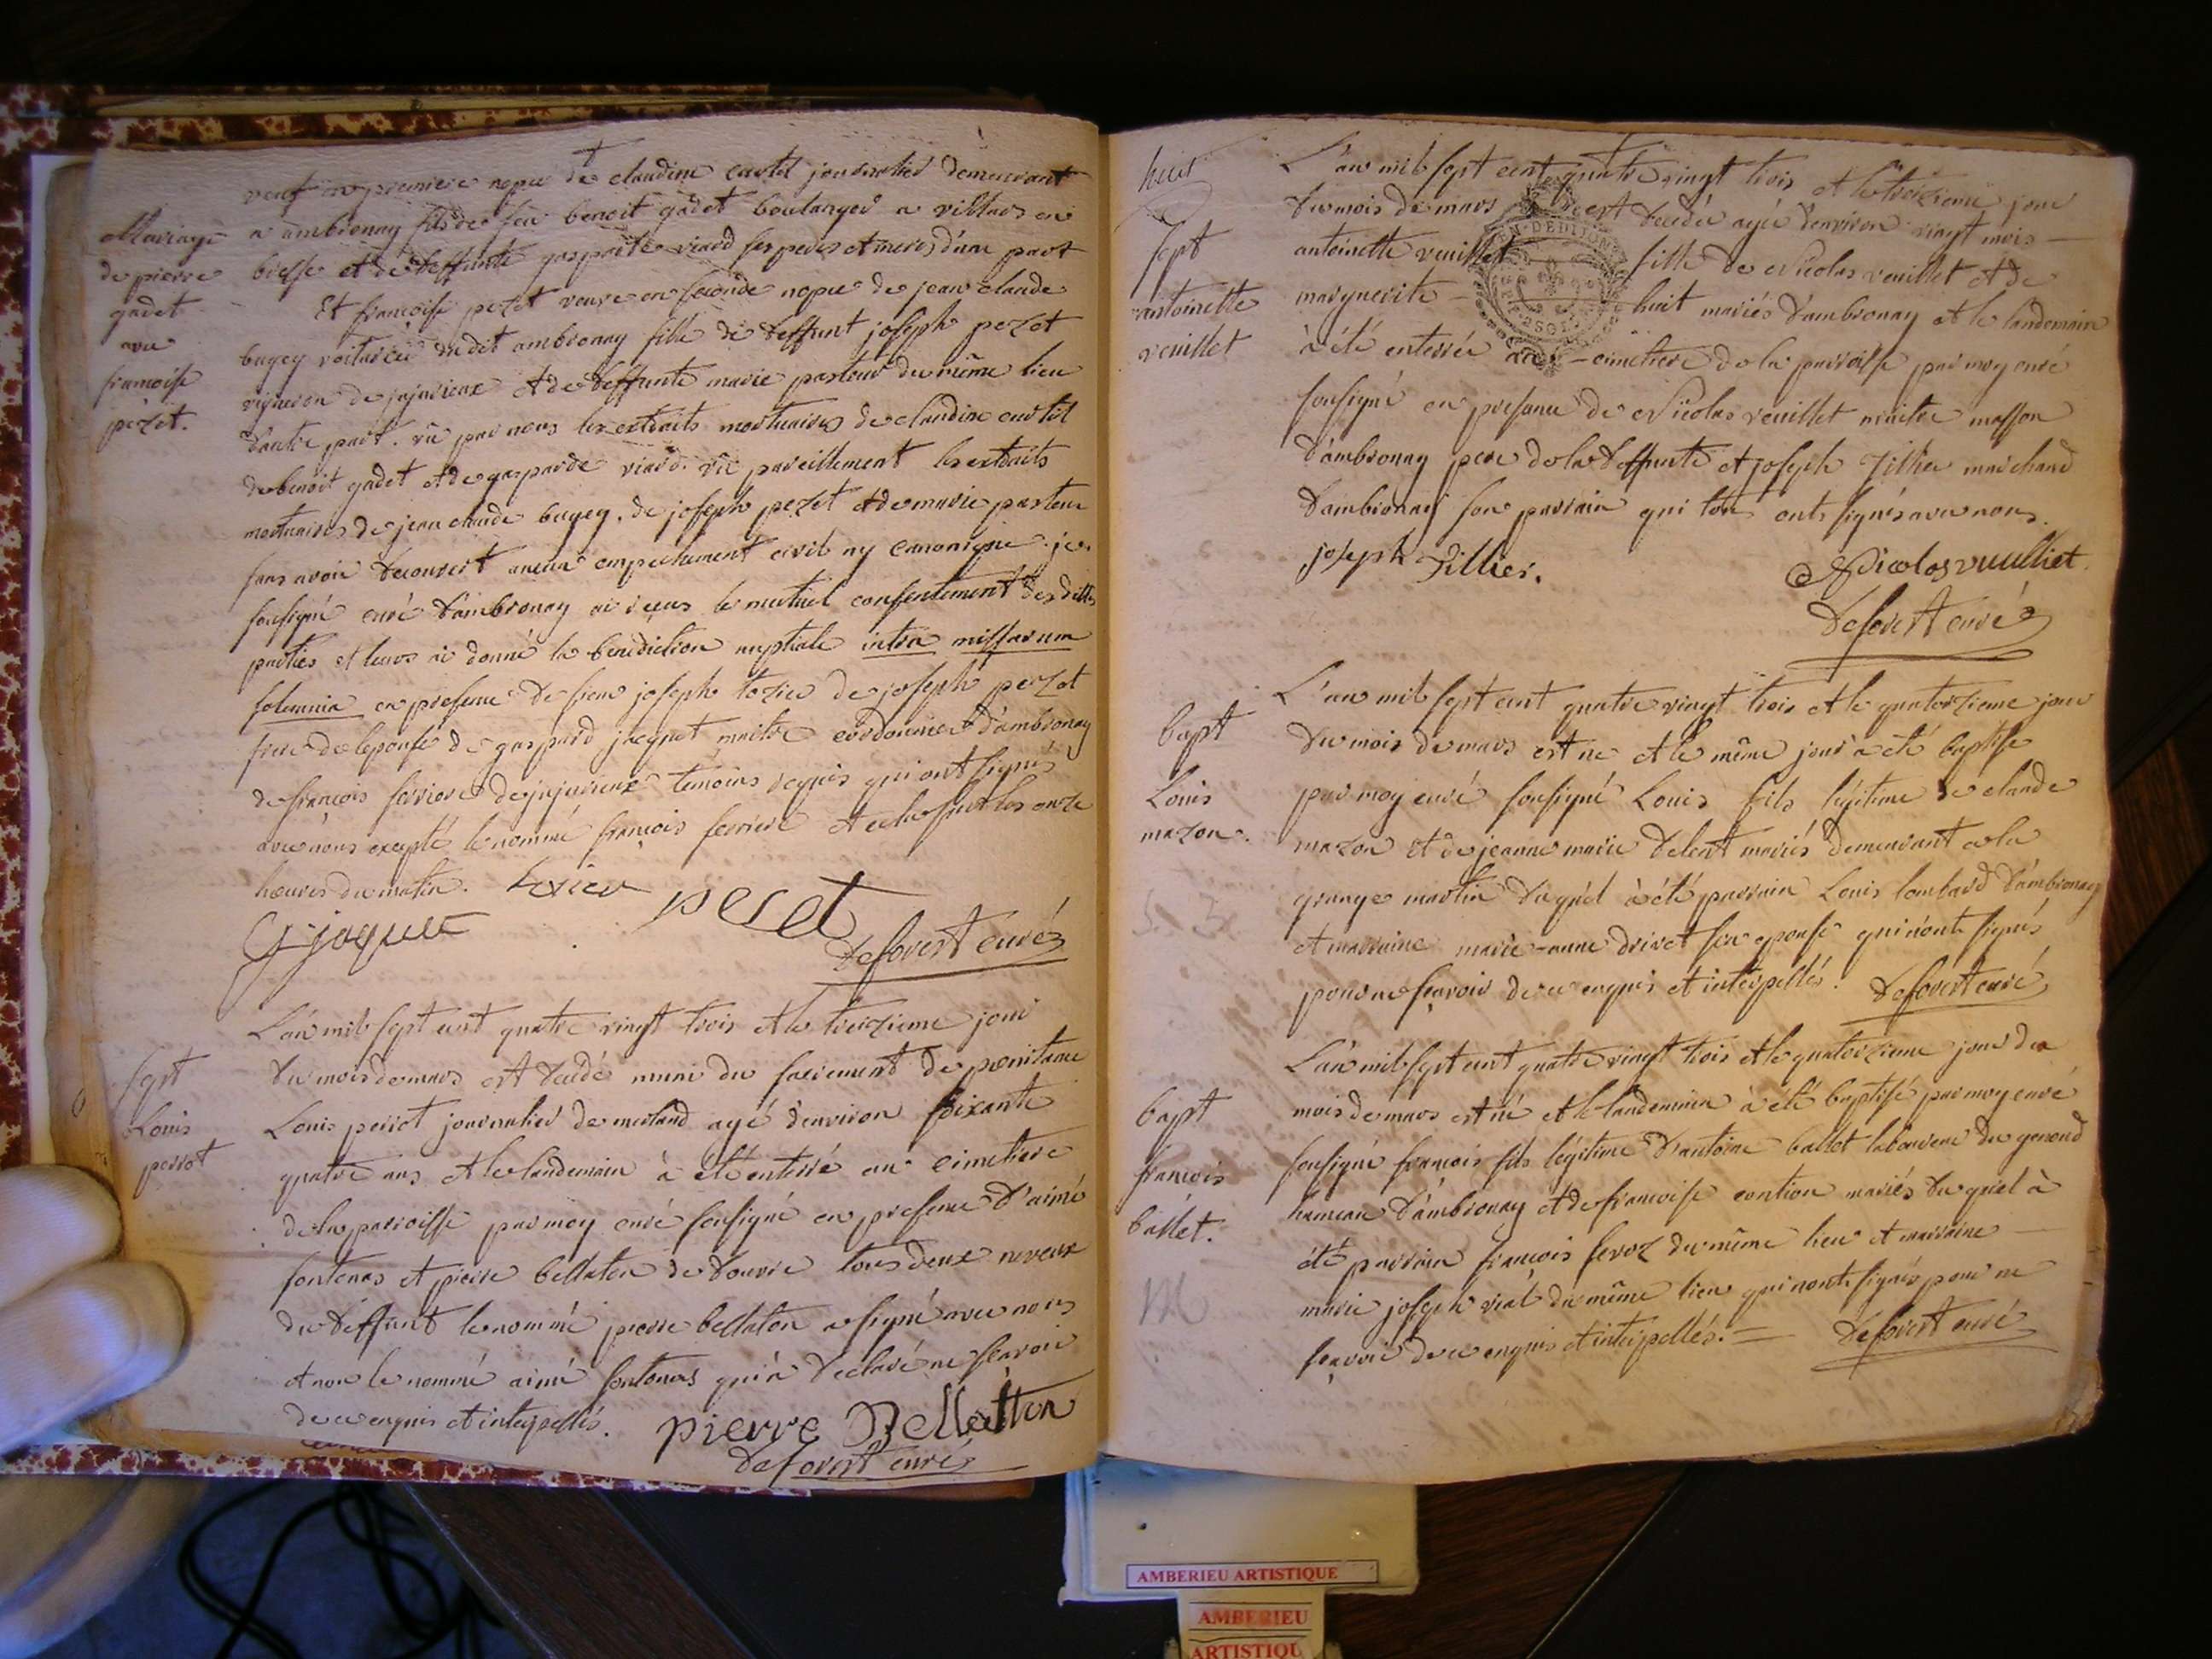 veuf en premiere nopce de claudine curtil journalier demeurant
a ambronay fils de feu benoit gadet boulanger a villars en
bresse et de deffunte gasparde viard ses peres et meres d'une part
Et françoise pezet veuve en seconde nopce de jean claude
bugey voiturier dudit ambronay fille de deffunt joseph pezet
vigneron de jujurieux et de deffunte marie pasteur du même lieu
d'autre part. vû par nous les extraits mortuaires de claudine curtil
de benoit gadet et de gasparde viard. vû pareillement les extraits
mortuaires de jean claude bugey, de joseph pezet et de marie pasteur
sans avoir decouvert aucun empechement civil ny canonique. je
soussigné curé d'ambronay ai reçus le mutuel consentement des dittes
parties et leurs ai donné la benediction nuptiale intra missarum
solemnia en presence de sieur joseph tozier de joseph pezet
frere de l'epouse de gaspard jacquet maitre cordonnier d'ambronay
de françois ferriere de jujurieux temoins requis qui ont signés
avec nous excepté le nommé françois ferriere et cela sur les onze
heures du matin. tozier peset
G jaquet
Deforest curé
Mariage
de pierre
gadet
avec
françoise
pezet.
L'an mil sept cent quatre vingt trois et le treizieme jour
du mois de mars est decédé muni du sacrement de penitence
Louis perrot journalier de merland agé d'environ soixante
quatre ans et le landemain à été enterré au cimetiere
de la parroisse par moy curé sousigné en presence d'aimé
fontenas et pierre bellaton de douvre tous deux neveux
du deffunt le nommé pierre bellaton a signé avec nous
et non le nommé aimé fontenas qui a declaré ne sçavoir
de ce enquis et interpellés. pierre Bellatton
Deforest curé
sept
Louis
perrot
huit
L'an mil sept cent quatre vingt trois et le treizieme jour
du mois de mars est decedée agée d'environ vingt mois
antoinette veuillet fille de Nicolas veuillet et de
marguerite huit mariés d'ambronay et le landemain
à été enterrée au cimetiere de la parroisse par moy curé
sousigné en presence de Nicolas veuillet maitre masson
d'ambronay pere de la deffunte et joseph Tillier marchand
d'ambronay son parrain qui tous onts signés avec nous.
joseph Tillier. Nicolas vuilliet.
Deforest curé
sept
antoinette
veuillet
L'an mil sept cent quatre vingt trois et le quatorzieme jour
du mois de mars est né et le même jour a été baptisé
par moy curé sousigné Louis fils légitime de claude
mazon et de jeanne marie delert mariés demeurant a la
grange martin duquel à été parrain Louis lombard d'ambronay
et marraine marie-anne drivet son epouse qui n'ont signés
pour ne sçavoir de ce enquis et interpellés. Deforest curé
bapt
Louis
mazon.
L'an mil sept cent quatre vingt trois et le quatorzieme jour du
mois de mars est né et le landemain à été baptisé par moy curé
sousigné françois fils légitime d'antoine ballet laboureur du genoud
hameau d'ambronay et de françoise contion mariés duquel à
été parrain françois feroz du même lieu et marraine
marie joseph vial du même lieu qui n'onts signés pour ne
sçavoir de ce enquis et interpellés. Deforest curé
bapt
francois
ballet.
AMBERIEU ARTISTIQUE
AMBERIEU
ARTISTIQU